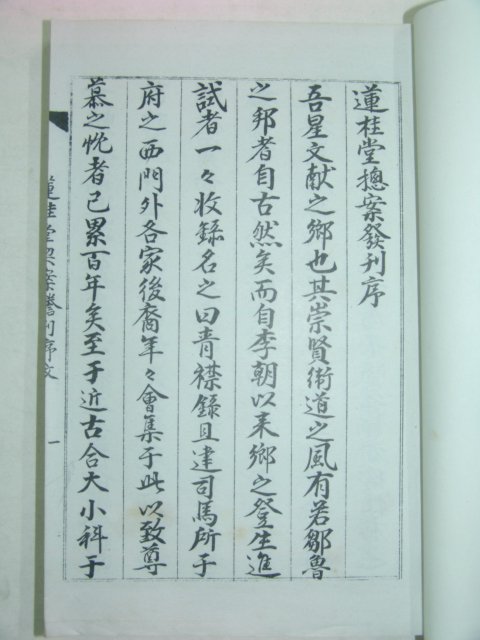 蓮桂堂摠案發刊序
吾星文献之鄉也其崇賢衛道之風有若鄒魯
之邦者自古然矣而自李朝以来鄉之登生進
試者一々收錄名之曰青襟錄且建司馬所于
府之西門外各家後裔年々會集于此以致尊
慕之忱者已累百年矣至于近古合大小科于
蓮桂堂契案譽刊序文
一